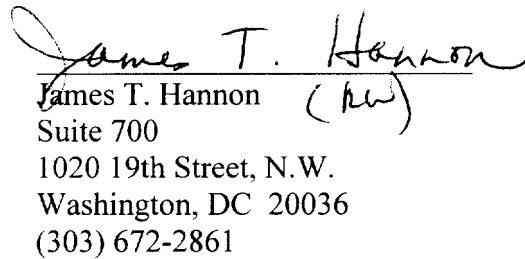 James T. Hannon
James T. Hannon
Suite 700
1020 19th Street, N.W.
Washington, DC 20036
(303) 672-2861